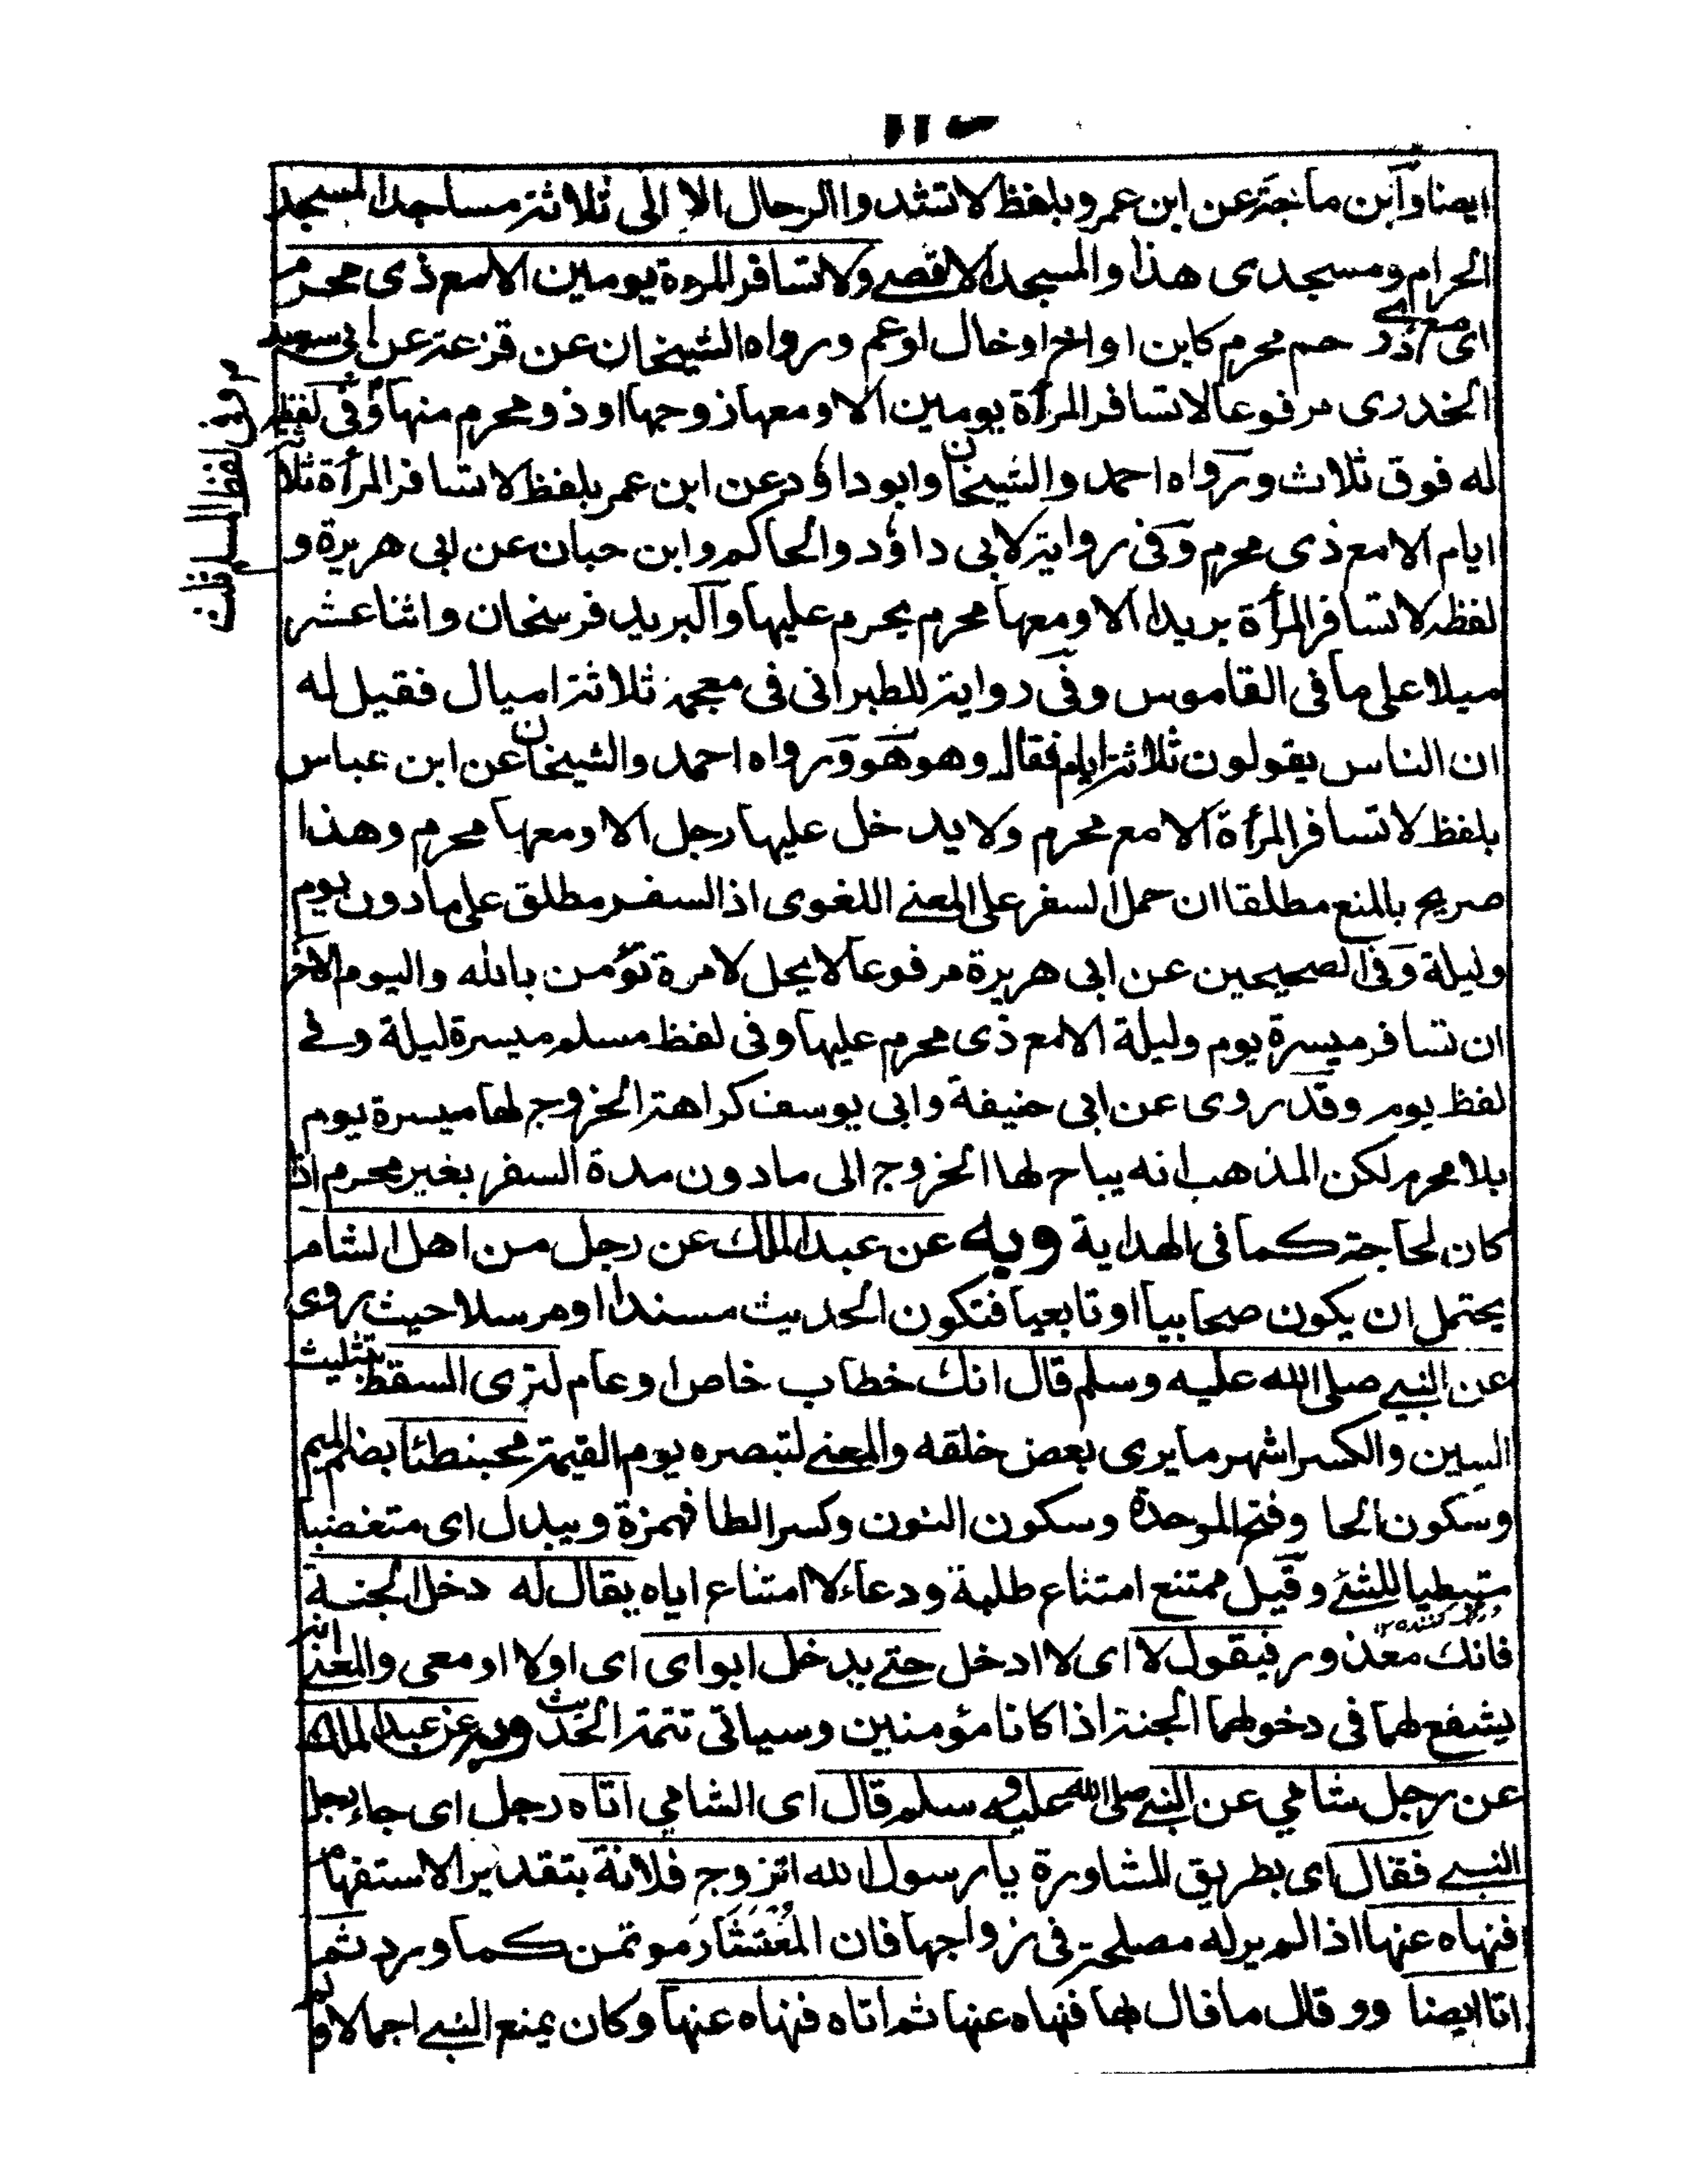 ايضا وابن ماجة عن ابن عمر وبلفظ لا تشدوا الرحال الا الى ثلاثة مساجد المسجد
الحرام ومسجدى هذا والمسجد الاقصى ولا تسافر المرءة يومين الا مع ذى محرم
اى مع ذى رحم محرم كابن او اخ او خال او عم ورواه الشيخان عن قزعة عن ابى سعيد
الخدرى مرفوعا لا تسافر المرأة يومين الا ومعها زوجها او ذو محرم منها وفى لفظ
له فوق ثلاث ورواه احمد والشيخان وابو داؤد عن ابن عمر بلفظ لا تسافر المرأة ثلاثة
ايام الا مع ذى محرم وفى رواية لابى داؤد والحاكم وابن حبان عن ابى هريرة و
لفظه لا تسافر المرأة بريدا الا ومعها محرم يحرم عليها والبريد فرسخان واثنا عشر
ميلا على ما فى القاموس وفى رواية للطبرانى فى معجمه ثلاثة اميال فقيل له
ان الناس يقولون ثلاثة ايام فقال وهو هو ورواه احمد والشيخان عن ابن عباس
بلفظ لا تسافر المرأة الا مع محرم ولا يدخل عليها رجل الا ومعها محرم وهذا
صريح بالمنع مطلقا ان حمل السفر على المعنى اللغوى اذ السفر مطلق على ما دون يوم
وليلة وفى الصحيحين عن ابى هريرة مرفوعا لا يحل لامرة تؤمن بالله واليوم الاخر
ان تسافر ميسرة يوم وليلة الا مع ذى محرم عليها وفى لفظ مسلم ميسرة ليلة وفى
لفظ يوم وقد روى عن ابى حنيفة وابى يوسف كراهة الخروج لها ميسرة يوم
بلا محرم لكن المذهب انه يباح لها الخروج الى ما دون مدة السفر بغير محرم اذا
كان لحاجة كما فى الهداية وبه عن عبد الملك عن رجل من اهل الشام
يحتمل ان يكون صحابيا او تابعيا فتكون الحديث مسندا او مرسلا حيث روى
عن النبى صلى الله عليه وسلم قال انك خطاب خاص او عام لترى السقط بتثليث
السين والكسر اشهر ما يرى بعض خلقه والمعنى لتبصره يوم القيمة محبنطئا بضم الميم
وسكون الحا وفتح الموحدة وسكون النون وكسر الطا فهمزة ويبدل اى متغضبا
ستبطيا للشئ وقيل ممتنع امتناع طلبة ودعاء لا امتناع اباه يقال له دخل الجنة
فانك معذور فيقول لا اى لا ادخل حتى يدخل ابواى اى اولا او معى والمعنى انه
يشفع لهما فى دخولهما الجنة اذا كانا مؤمنين وسياتى تتمة الحديث وبه عن عبد الملك
عن رجل شامي عن النبى صلى الله عليه وسلم قال اى الشامي اتاه رجل اى جاء رجل
النبى فقال اى بطريق المشاورة يا رسول الله اتزوج فلانة بتقدير الاستفهام
فنهاه عنها اذا لم ير له مصلحة فى زواجها فان المستشار موتمن كما ورد ثم
اتا ايضا وقال ما قال لها فنهاه عنها ثم اتاه فنهاه عنها وكان يمنع النبى اجمالا و
وفى لفظ لمسلم ثلث